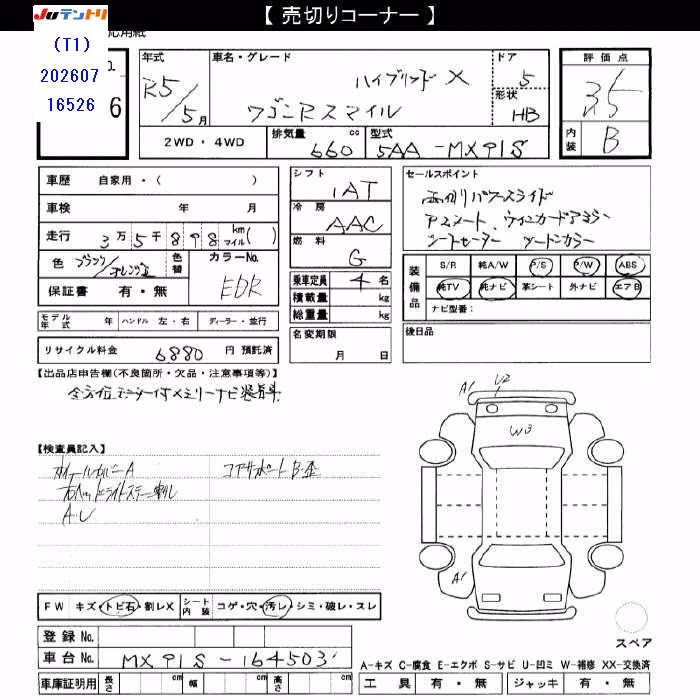 【 売切りコーナー 】
JUテントリ
(T1)
202607
16526
6
年式
R5/5月
車名・グレード
ハイブリッド X
ワゴンRスマイル
ドア
5
形状
HB
評価点
3.5
内装
B
2WD・4WD
排気量 660 cc
型式 5AA-MX91S
車歴 自家用・( )
車検 年 月
走行 3万5千898 km マイル( )
色
色替
カラーNo.
EDR
保証書 有・無
モデル年式 年 ハンドル 左・右 ディーラー・並行
リサイクル料金 6880 円 預託済
シフト
IAT
冷房
AAC
燃料
G
乗車定員 4 名
積載量 kg
総重量 kg
名変期限
月 日
セールスポイント
両側パワースライド
シートヒーター ツートンカラー
装備品
S/R 純A/W P/S P/W ABS
純TV 純ナビ 革シート 外ナビ エアB
ナビ型番:
後日品
【出品店申告欄(不良箇所・欠品・注意事項等)】
全方位モニター付メモリーナビ装着車
【検査員記入】
コアサポートB・歪
A・U
FW キズ・トビ石・割レX
シート内装 コゲ・穴・汚レ・シミ・破レ・スレ
登録No.
車台No. MX91S-164503
車庫証明用 長さ cm 幅 cm 高さ cm
A1
U2
W3
A1
スペア
A-キズ C-腐食 E-エクボ S-サビ U-凹ミ W-補修 XX-交換済
工具 有・無 ジャッキ 有・無